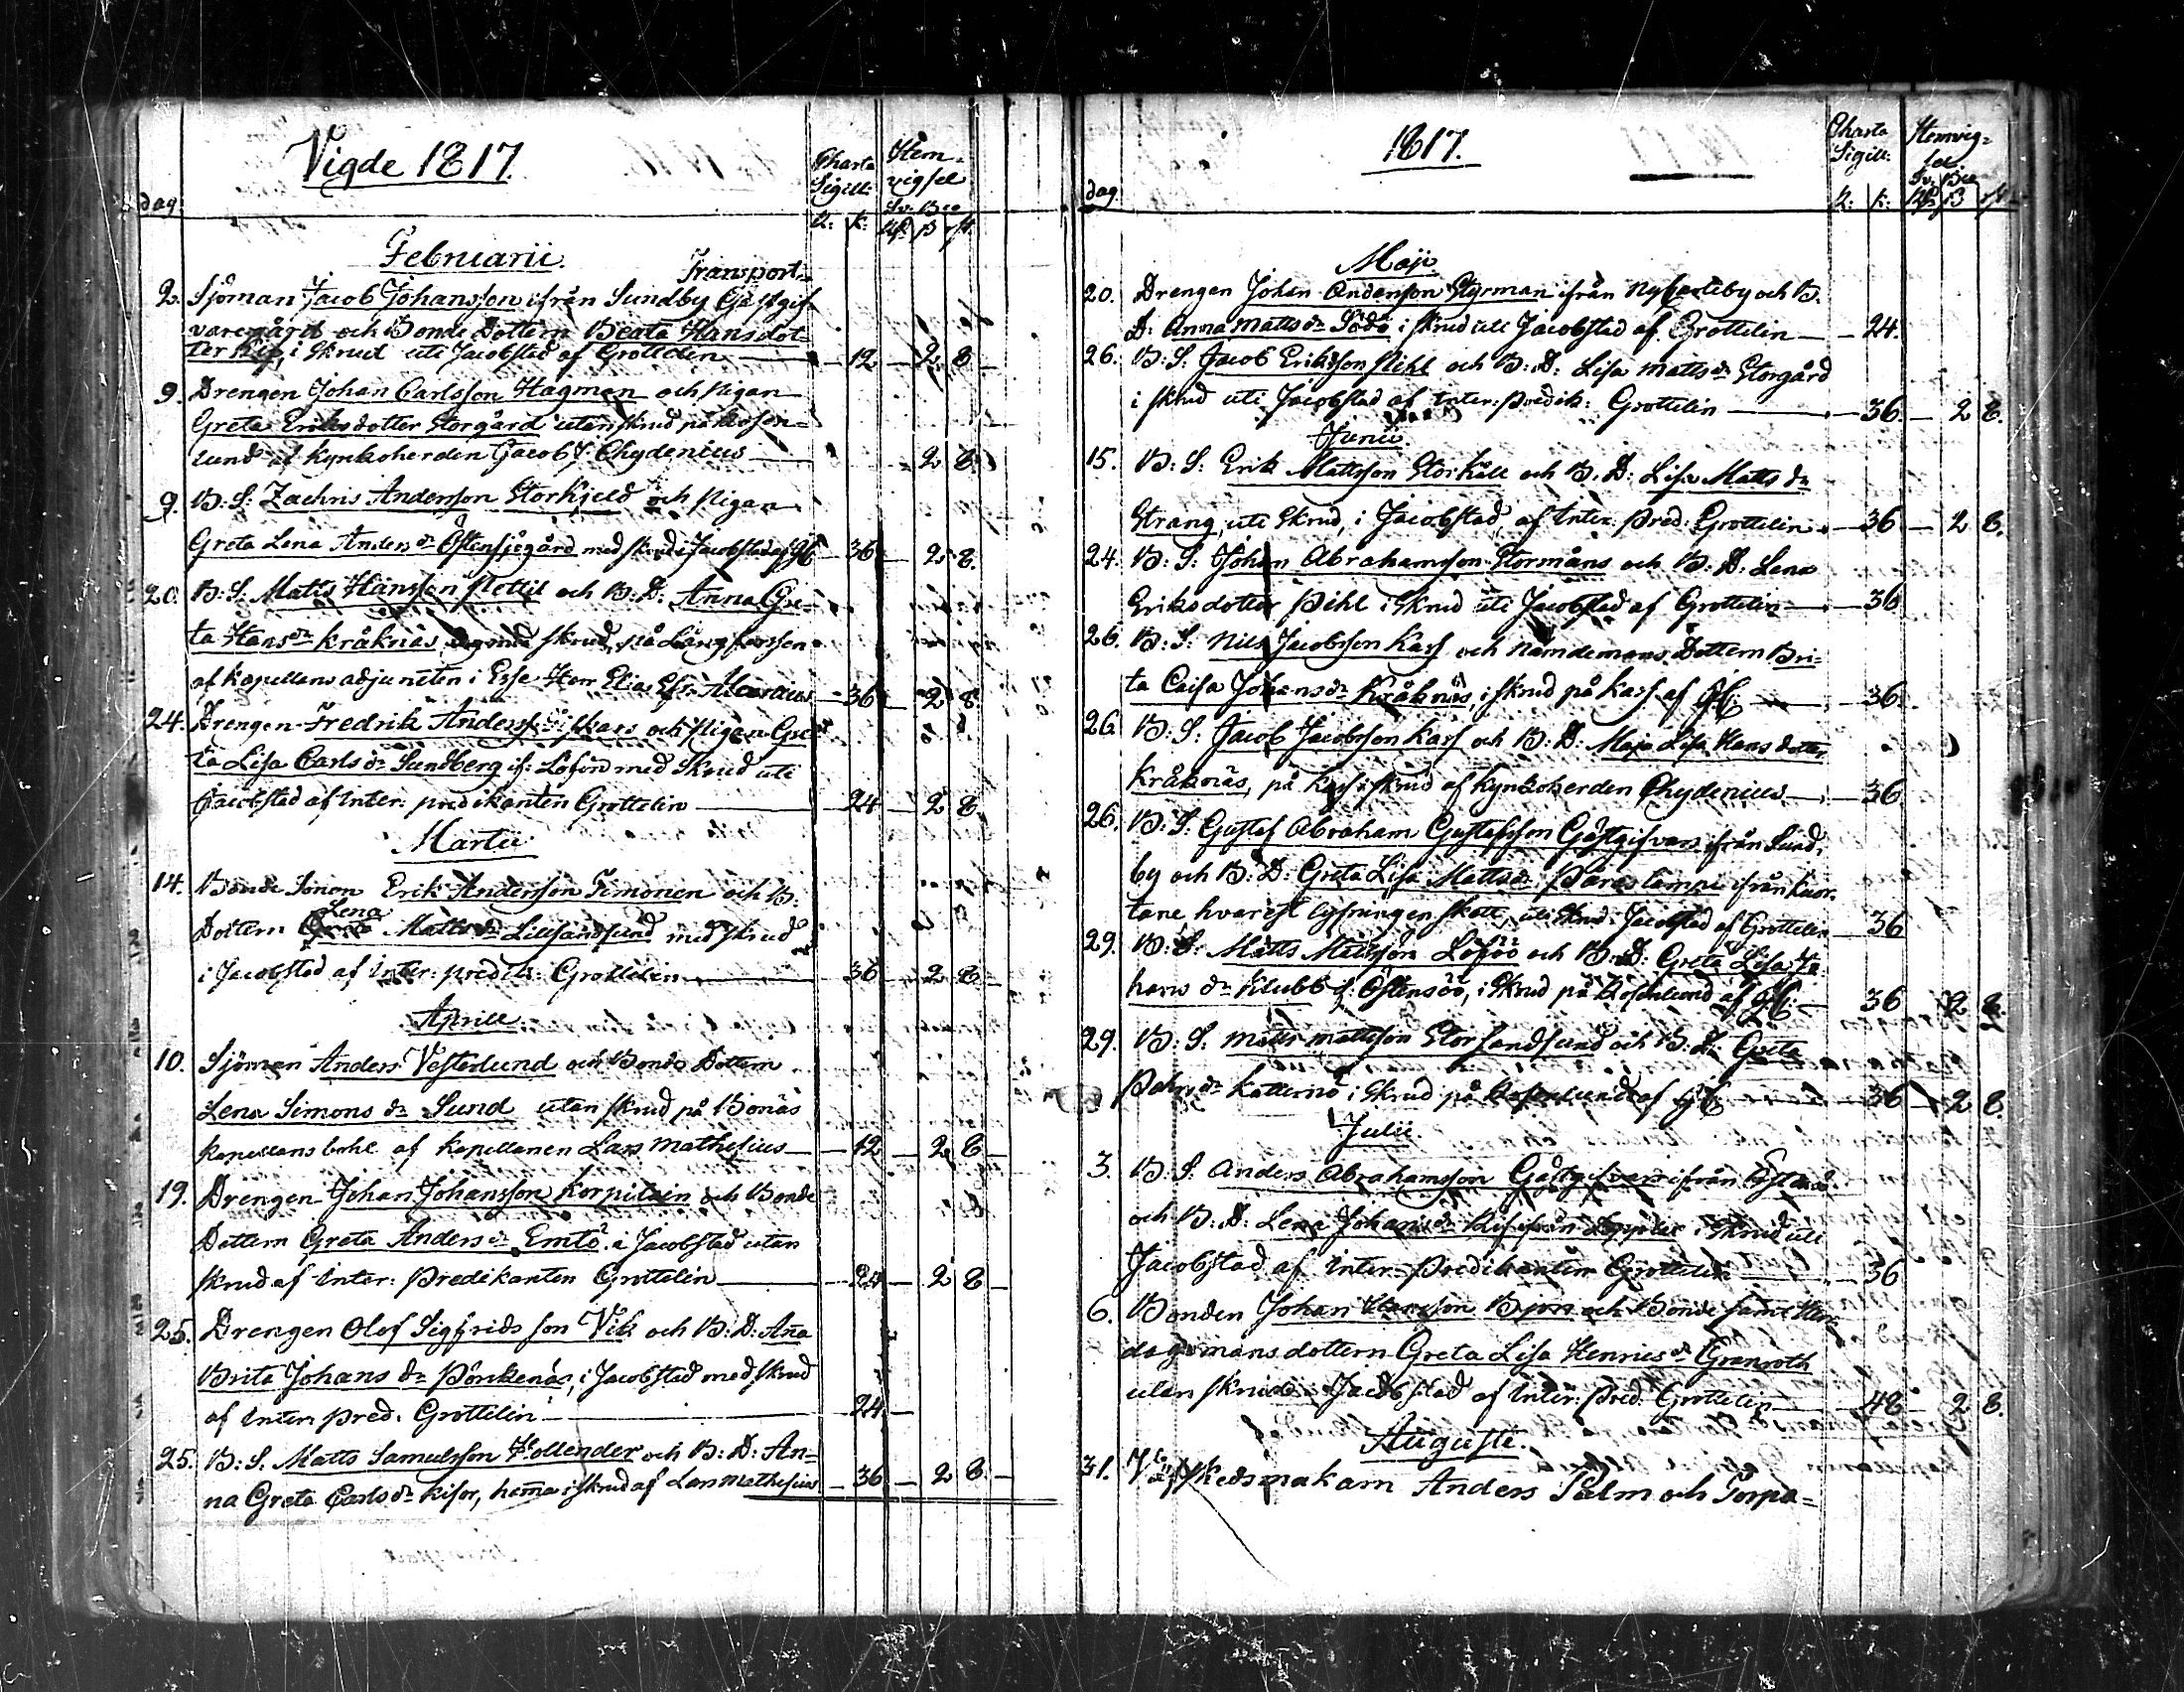 Vigde 1817.
dag
Charta Sigill:
Hemvigsel
Sv. Bco
R: k: Rd β rst.
Februarii.
Transport
2. Sjöman Jacob Johansson ifrån Sundby Gästgif
varegård och Bonde Dottern Beata Hansdot-
ter Kis, i Skrud uti Jacobstad af Grottelin — 12 — 2 8 —
9. Drengen Johan Carlsson Hagman och Pigan
Greta Eriksdotter Storgård utan skrud på Rosen-
lund af Kyrkoherden Jacob J: Chydenius — 2 8.
9. B: S: Zachris Andersson Storkjeld och Pigan
Greta Lena Anders dr Östensjögård med skrud i Jacobstad af — 36 — 2 8.
20. B: S: Matts Hansson och B: D: Anna Gre-
ta Hans dr Kråknäs med skrud, på
af Kapellans adjuncten i Esse Herr Elias Alcenius — 36 — 2 8.
24. Drengen Fredrik Anderss: och Pigan Gre
ta Lisa Carls dr Sundberg if: Löfön med Skrud uti
Jacobstad af Inter: predikanten Grottelin — 24 — 2 8.
Martii
14. Bonde Sonen Erik Andersson Timonen och B:
Lena
Dottern Matts dr Lillsandsund med skrud
i Jacobstad af Inter: predik: Grottelin — 36 — 2 8 —
Aprill
10. Sjöman Anders Vesterlund och Bonde Dottern
Lena Simons dr Sund utan skrud på Bonäs
Kapellans bohl af Kapellanen Lars Mathesius — 12 — 2 8 —
19. Drengen Johan Johansson Korpilain och Bonde
Dottern Greta Anders dr Emtö i Jacobstad utan
skrud af Inter: Predikanten Grottelin — 24 — 2 8 —
25. Drengen Olof Sigfridsson Vik och B: D: Aña
Brita Johans dr Pörkenäs, i Jacobstad med skrud
af Inter: pred: Grottelin — 24 —
25. B: S. Matts Samuelsson Hollender och B: D: An-
na Greta Carls dr Kisor, hema i skrud af Lars Mathesius — 36 — 2 8. —
1817.
dag.
Charta Sigill:
Hemvigsel
Sv. Bco
R: k: Rd β rst.
Maji
20. Drengen Johan Andersson Styrman ifrån Nykarleby och B.
D: Anna Matts dr Södö i skrud uti Jacobstad af Grottelin — 24.
26. B: S: Jacob Eriksson Pihl och B: D: Lisa Matts dr Storgård
i skrud uti Jacobstad af Inter: predik: Grottelin — 36. — 2 8.
Junii
15. B: S: Erik Mattsson Storkåll och B. D: Lisa Matts dr
Strang, uti Skrud, i Jacobstad, af Inter: Pred: Grottelin — 36 — 2 8.
24. B: S: Johan Abrahamsson Stormåns och B: D: Lena
Eriksdotter Pihl i Skrud uti Jacobstad af Grottelin — 36
26. B: S: Nils Jacobsson Kass och Nämdemans Dottern Bri-
ta Caisa Johans dr Kråknäs, i skrud på Kass af — 36.
26. B: S: Jacob Jacobsson Kass och B: D: Maja Lisa Hans dotter
Kråknäs, på Kass i skrud af Kyrkoherden Chydenius — 36
26. B: S: Gustaf Abraham Gustafsson Gästgifvars ifrån Sund-
by och B: D: Greta Lisa Matts dr ifrån Kuor-
tane hvarest lysningen skett, uti skrud i Jacobstad af Grottelin 36
29. B: S: Matts Mattsson Löföö och B: D: Greta Lisa Jo-
hans dr Klubb if: Östensöö, i Skrud på Rosenlund af — 36 2 8.
29. B: S: Matts Mattsson Storsandsund och B: D: Greta
Pehrs dr Katternö i Skrud på Rosenlund af — 36 — 2 8.
Julii.
3 B: S: Anders Abrahamsson Gästgifvars ifrån
och B: D: Lena Johans dr Kis ifrån i Skrud uti
Jacobstad af Inter: predikanten Grottelin — 36
6. Bonden Johan Hansson och Bonde samt
dagsmans dottern Greta Lisa Henrics dr Granroth
utan skrud i Jacobstad af Inter: Pred: Grottelin — 48 2 8.
Augusti.
31. Anders Palm och Torpa-